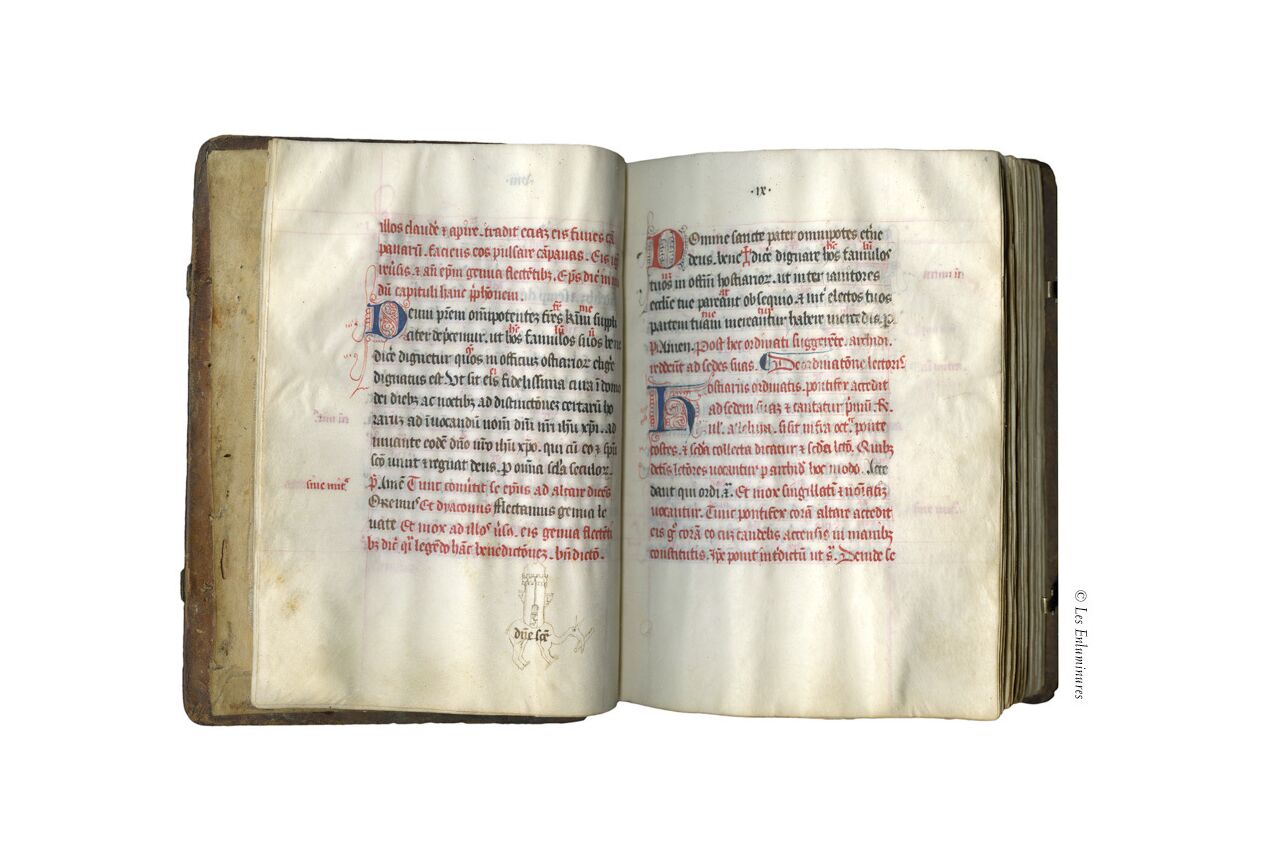 illos claudē ⁊ apīre. tradit eciaʒ eis funes cā
panarū. faciens eos pulsare cāpanas. Eis
uʳsis. ⁊ an̄ ep̄m genua flectētibʒ. Ep̄s dic̄ in
dū capituli hanc p̄phonem.
Deum p̄rem om̄ipotentez fr̄es kīmi suppli
citer dep̄cemur. ut hos famulos suos bene
dic̄e dignetur quos in officiuʒ ostiarioꝝ elige
dignatus est. Ut sit eis fidelissima cura ī domo
dei diebʒ ac noctibʒ ad distinctōnez certarū ho
rarūʒ ad inuocandū nom̄ dn̄i nr̄i ihū xp̄i. ad
iuuante eodē dn̄o nr̄o ihū xp̄o. qui cū eo ⁊ sp̄u
sc̄o uiuit ⁊ regnat deus. p om̄ia sc̄la seculoꝝ.
sine mitᵃ
℟. Amē Tunc conūtit se ep̄us ad altare dicēs
Oremus Et dyaconus fflectamus genua le
uate Et mox ad illos uʳsus. eis genua flectēti
bʒ dic̄ qͥ legēdo hāc benedictōneʒ. bn̄dictō.
dn̄e sc̄e
·ix·
Domine sancte pater omnipotēs et̄ne
deus. bene✝dic̄e dignare hos famulos
tuos in officiū hostiarioꝝ. ut inter ianitores
eccl̄ie tue pareant obsequio. ⁊ int̄ electos tuos
partem tuam mereantur habere mercedis. p.
℟. Amen. Post hec ordinati suggerēte. archidi.
redeūt ad sedes suas. De ordinatōne lectorꝝ
Hostiariis ordinatis. pontifex accedit
ad sedem suaʒ ⁊ cantatur p̄mū. ℟.
uꝉ. alleluia. si sit infra octᵃ. pente
costes. ⁊ sc̄da collecta dicatur ⁊ sc̄da lectō. Quibʒ
dc̄is lectores uocantur p archid̄ hoc modo. Acce
dant qui ordi.ᵃ. Et mox singillatī ⁊ nōiatīʒ
uocantur. Tunc pontifex corā altare accedit
eis gᵒ corā eo cuʒ candelis accensis in manibʒ
constitutis. ip̄e ponit inƚdictū ut sᵃ. Deinde se
© Les Enluminures